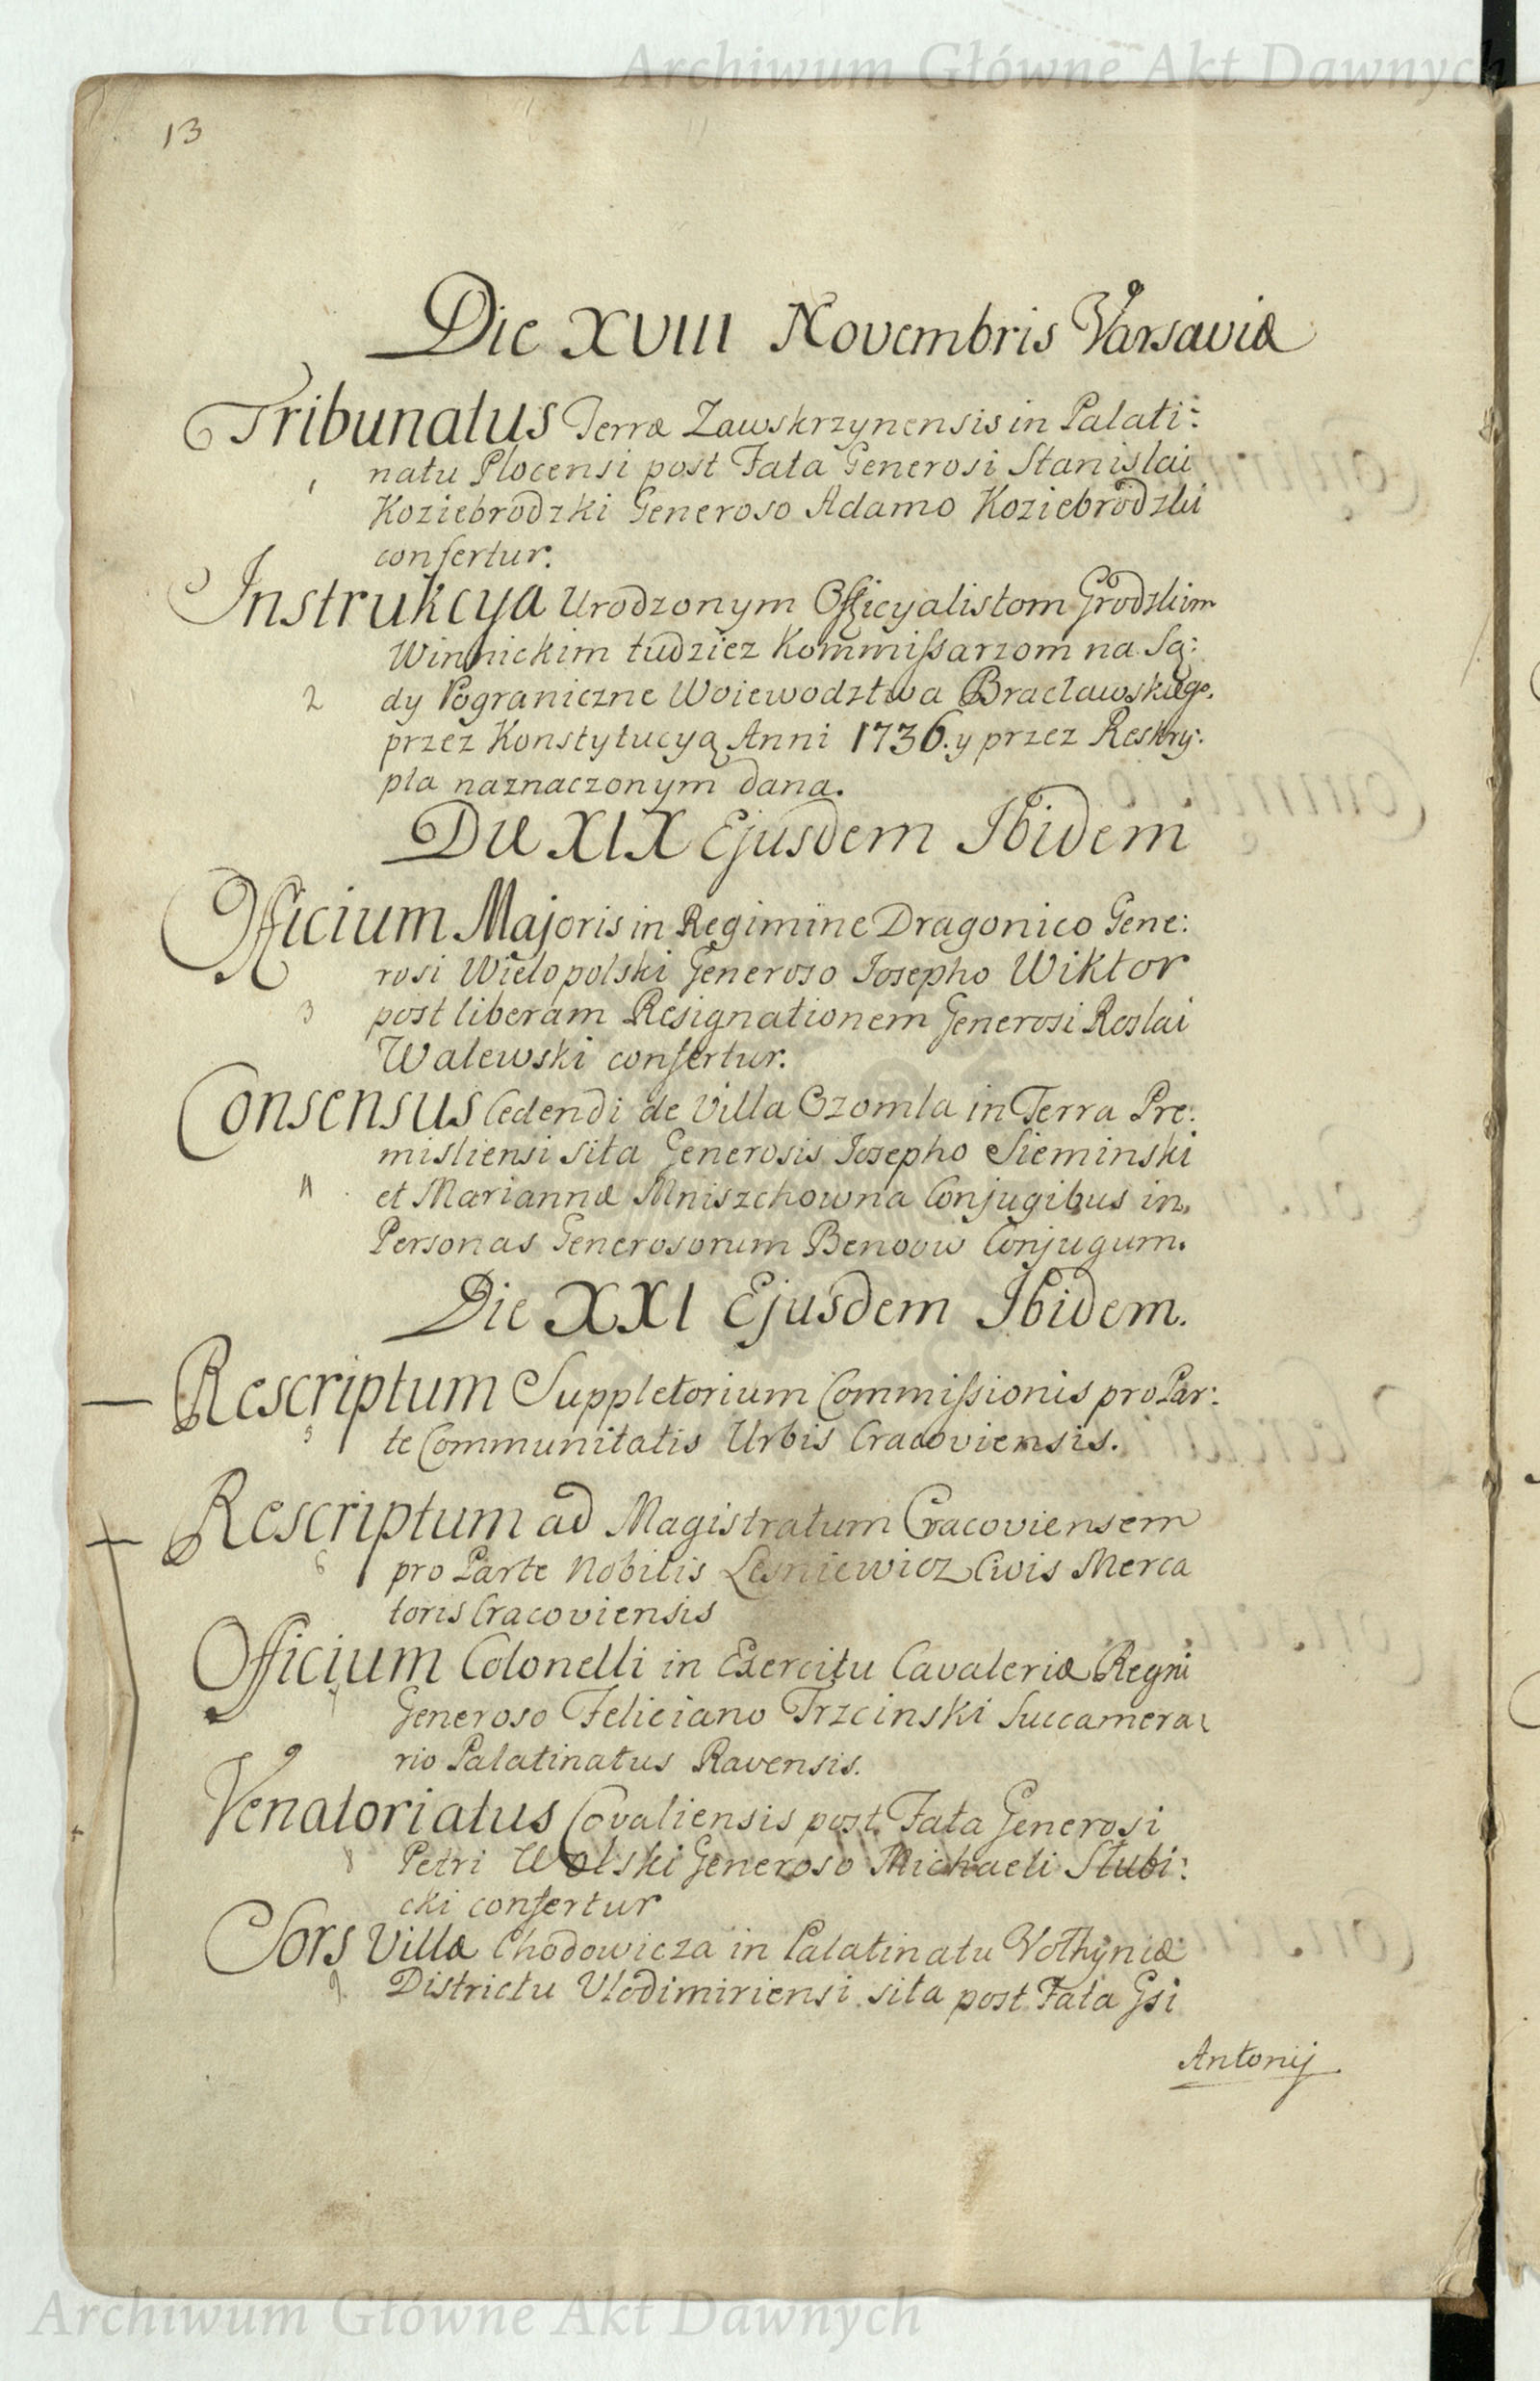 Archiwum Główne Akt Dawnych
13
Die XVIII Novembris Varsaviæ
Tribunatus Terræ Zawskrzynensis in Palati:
1 natu Plocensi post Fata Generosi Stanislai
Koziebrodzki Generoso Adamo Koziebrodzki
confertur.
Instrukcya Urodzonym Officyalistom Grodzkim
Winnickim tudziez Kommissarzom na Są:
2 dy Pograniczne Woiewodztwa Bracławskiego,
przez Konstytucyą Anni 1736. y przez Reskry:
pta naznaczonym dana.
Die XIX Ejusdem Ibidem
Officium Majoris in Regimine Dragonico Gene:
rosi Wielopolski Generoso Josepho Wiktor
3 post liberam Resignationem Generosi
Walewski confertur.
Consensus Cedendi de Villa Czomla in Terra Pre:
misliensi sita Generosis Josepho Sieminski
4 et Mariannæ Mniszchowna Conjugibus in
Personas Generosorum Benoow Conjugum.
Die XXI Ejusdem Ibidem.
Rescriptum Suppletorium Commissionis pro Par:
5 te Communitatis Urbis Cracoviensis.
Rescriptum ad Magistratum Cracoviensem
6 pro Parte Nobilis Lesniewicz Civis Merca
toris Cracoviensis
Officium Colonelli in Exercitu Cavaleriæ Regni
7 Generoso Feliciano Trzcinski Succamera:
rio Palatinatus Ravensis.
Venatoriatus Covaliensis post Fata Generosi
8 Petri Wolski Generoso Michaeli Słubi:
cki confertur
Sors Villæ Chodowicza in Palatinatu Volhyniæ
9 Districtu Vlodimiriensi sita post Fata Gsi
Antonij
Archiwum Główne Akt Dawnych